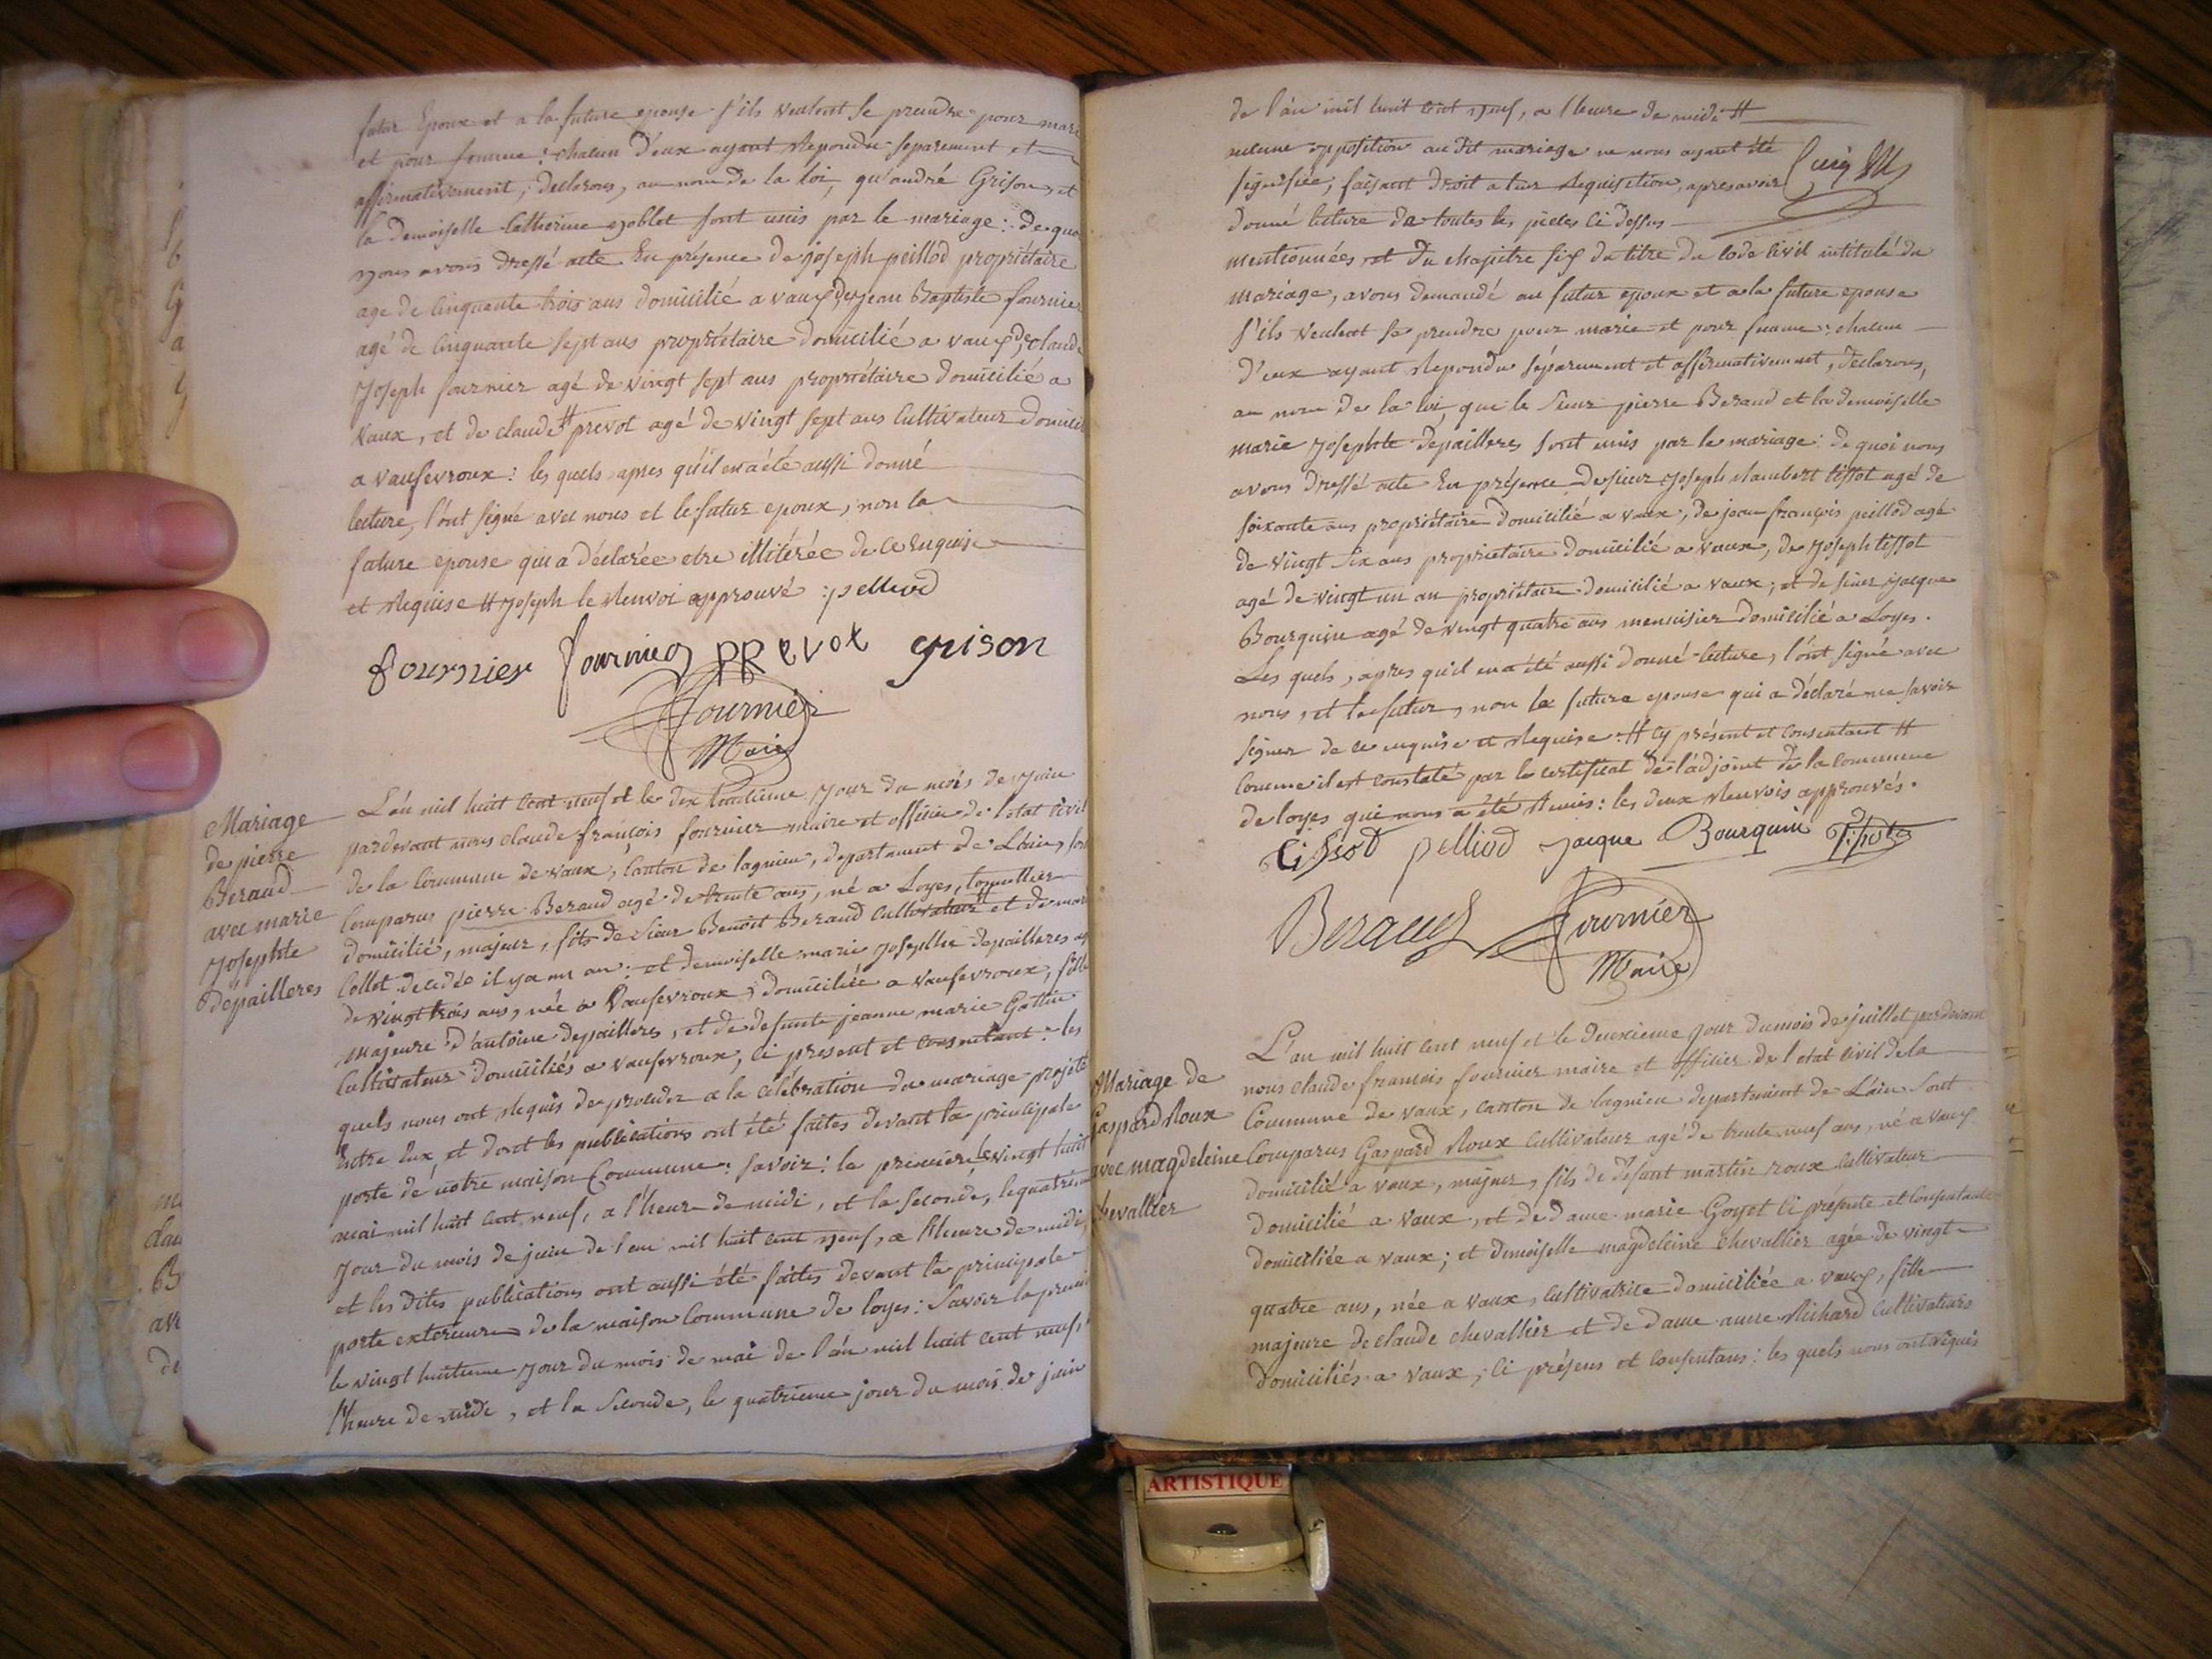 futur Epoux et a la future epouse s'ils veulent se prendre pour mari
et pour femme : chacun d'eux ayant Repondu separement et
affirmativement, declarons, au nom de la loi, qu'andré Grison, et
la demoiselle Catherine noblet sont unis par le mariage : de quoi
nous avons dressé acte En présence de joseph peillod propriétaire
agé de Cinquante trois ans domicilié a vaux, de jean Baptiste fournier
agé de Cinquante sept ans propriétaire domicilié a vaux, de Claude
Joseph fournier agé de vingt sept ans propriétaire domicilié a
Vaux, et de claude # prevot agé de vingt sept ans Cultivateur domicil
a vaufevroux : les quels apres qu'il en a été aussi donné
lecture, l'ont signé avec nous et le futur epoux, non la
future epouse qui a déclarée etre illitérée de ce Enquise
et Requise # Joseph le Renvoi approuvé : pelliod
fournier fournier PREVOt grison
fournier
Maire
Mariage
de pierre
Beraud
avec marie
Josephte
Depailleres
L'an mil huit Cent neuf et le dix huitieme Jour du mois de Juin
pardevant nous claude françois fournier maire et officier de l'etat Civil
de la Commune de vaux, Canton de lagnieu, departement de L'ain, sont
Comparus pierre Beraud agé de trente ans, né a Loyes,
domicilié, majeur, fils de sieur Benoit Beraud Cultivateur # et de marie
Collet decedée il y a un an : et demoiselle marie Josephte depailleres
de vingt trois ans, née a Vaufevroux, domiciliée a vaufevroux, fille
Majeure d'antoine depailleres, et de defunte jeanne marie Gattin
Cultivateur domiciliés a vaufevroux, Ci present et Consentant : les
quels nous ont Requis de proceder a la Célébration du mariage projeté
Entre Eux, et dont les publications ont été faites devant la principale
porte de notre maison Commune : savoir : la premiere le vingt huit
mai mil huit Cent neuf, a l'heure de midi, et la seconde, le quatrieme
Jour du mois de juin de l'an mil huit Cent neuf, a l'heure de midi,
et les dites publications ont aussi été faites devant la principale
porte exterieure de la maison Commune de loyes : savoir la premiere
le vingt huitieme Jour du mois de mai de l'an mil huit Cent neuf,
l'heure de midi, et la seconde, le quatrieme jour du mois de juin
de l'an mil huit Cent neuf, a l'heure de midi #
aucune opposition au dit mariage ne nous ayant été
signifiée, faisant droit a leur Requisition, apres avoir
donné lecture de toutes les pieces Ci dessus
mentionnées, et du chapitre six du titre du Code Civil intitulé du
mariage, avons demandé au futur epoux et a la future epouse
s'ils veulent se prendre pour marie et pour femme : chacun
d'eux ayant Repondu séparement et affirmativement, declarons,
au nom de la loi, que le sieur pierre Beraud et la demoiselle
marie Josephte depailleres sont unis par le mariage : de quoi nous
avons dressé acte En présence de sieur Joseph Rambert tissot agé de
soixante ans propriétaire domicilié a vaux, de jean françois peillod agé
de vingt six ans proprietaire domicilié a vaux, de Joseph tissot
agé de vingt un an propriétaire domicilié a vaux ; et de sieur Jacque
Bourquin agé de vingt quatre ans menuisier domicilié a Loyes.
Les quels, apres qu'il en a été aussi donné lecture, l'ont signé avec
nous, et le futur, non la future epouse qui a déclaré ne savoir
signer de ce enquise et Requise : # Cy présent et Consentant #
Comme il est constaté par le certificat de l'adjoint de la Commune
de loyes qui nous a été Remis : les deux Renvois approuvés.
tissot pelliod jacque Bourquin
Beraud fournier
Maire
Mariage de
Gaspard Roux
avec magdeleine
Chevallier
L'an mil huit Cent neuf et le deuxieme Jour du mois de juillet par devant
nous claude francois fournier maire et officier de l'etat Civil de la
Commune de vaux, canton de lagnieu departement de L'ain sont
Comparus Gaspard Roux Cultivateur agé de trente neuf ans, né a vaux
domicilié a vaux, majeur, fils de defunt martin roux cultivateur
domicilié a vaux, et de dame marie Goyet Ci présente et Consentante
domiciliée a vaux ; et demoiselle magdeleine chevallier agée de vingt
quatre ans, née a vaux, Cultivatrice domiciliée a vaux, fille
majeure de claude chevallier et de dame anne Richard Cultivateurs
domiciliés a vaux ; Ci présens et Consentans : les quels nous ont requis
ARTISTIQUE